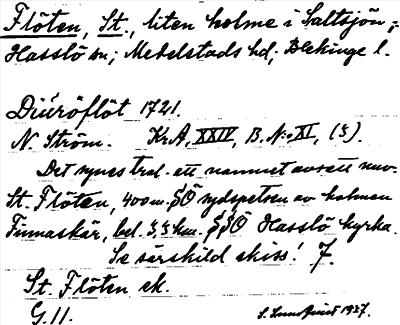 Flöten, St., liten holme i Saltsjön;
Hasslö sn; Medelstads hd; Blekinge l.
Diúröflöt 1721.
N. Ström. Kr.A, XXIV, B. N:o XI, (3).
Det synes tral. ett namnet avsett nuv.
St. Flöten, 400 m. SÖ sydspetsen av holmen
Finnaskär, bel. 3,3 km. SSÖ Hasslö kyrka.
Se särskild skiss! 7.
St. Flöten ek.
G. 11. 1927.